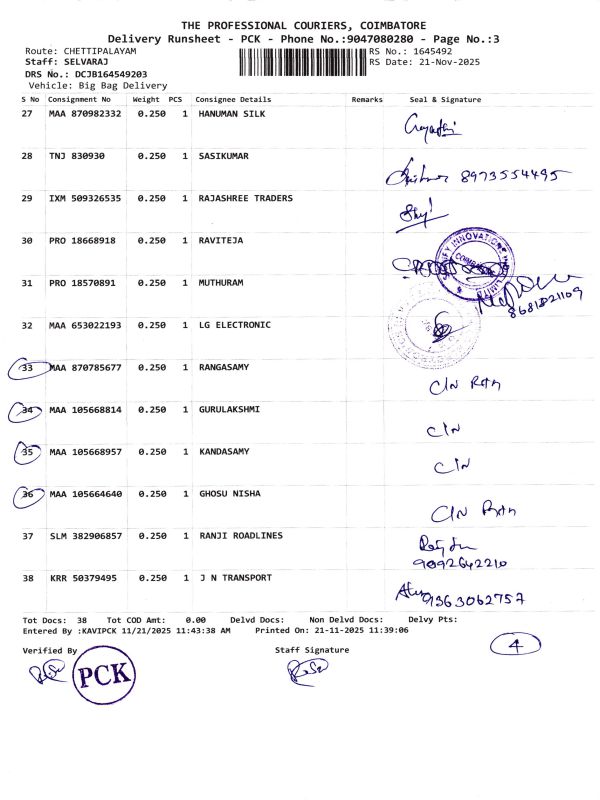 THE PROFESSIONAL COURIERS, COIMBATORE
Delivery Runsheet - PCK - Phone No.:9047080280 - Page No.:3
Route: CHETTIPALAYAM RS No.: 1645492
Staff: SELVARAJ RS Date: 21-Nov-2025
DRS No.: DCJB164549203
Vehicle: Big Bag Delivery
S No Consignment No Weight PCS Consignee Details Remarks Seal & Signature
27 MAA 870982332 0.250 1 HANUMAN SILK
28 TNJ 830930 0.250 1 SASIKUMAR
8973554495
29 IXM 509326535 0.250 1 RAJASHREE TRADERS
30 PRO 18668918 0.250 1 RAVITEJA
31 PRO 18570891 0.250 1 MUTHURAM
32 MAA 653022193 0.250 1 LG ELECTRONIC
33 MAA 870785677 0.250 1 RANGASAMY
C/N
34 MAA 105668814 0.250 1 GURULAKSHMI
C/N
35 MAA 105668957 0.250 1 KANDASAMY
C/N
36 MAA 105664640 0.250 1 GHOSU NISHA
C/N
37 SLM 382906857 0.250 1 RANJI ROADLINES
9092642210
38 KRR 50379495 0.250 1 J N TRANSPORT
9363062757
Tot Docs: 38 Tot COD Amt: 0.00 Delvd Docs: Non Delvd Docs: Delvy Pts:
Entered By :KAVIPCK 11/21/2025 11:43:38 AM Printed On: 21-11-2025 11:39:06
4
Verified By Staff Signature
PCK